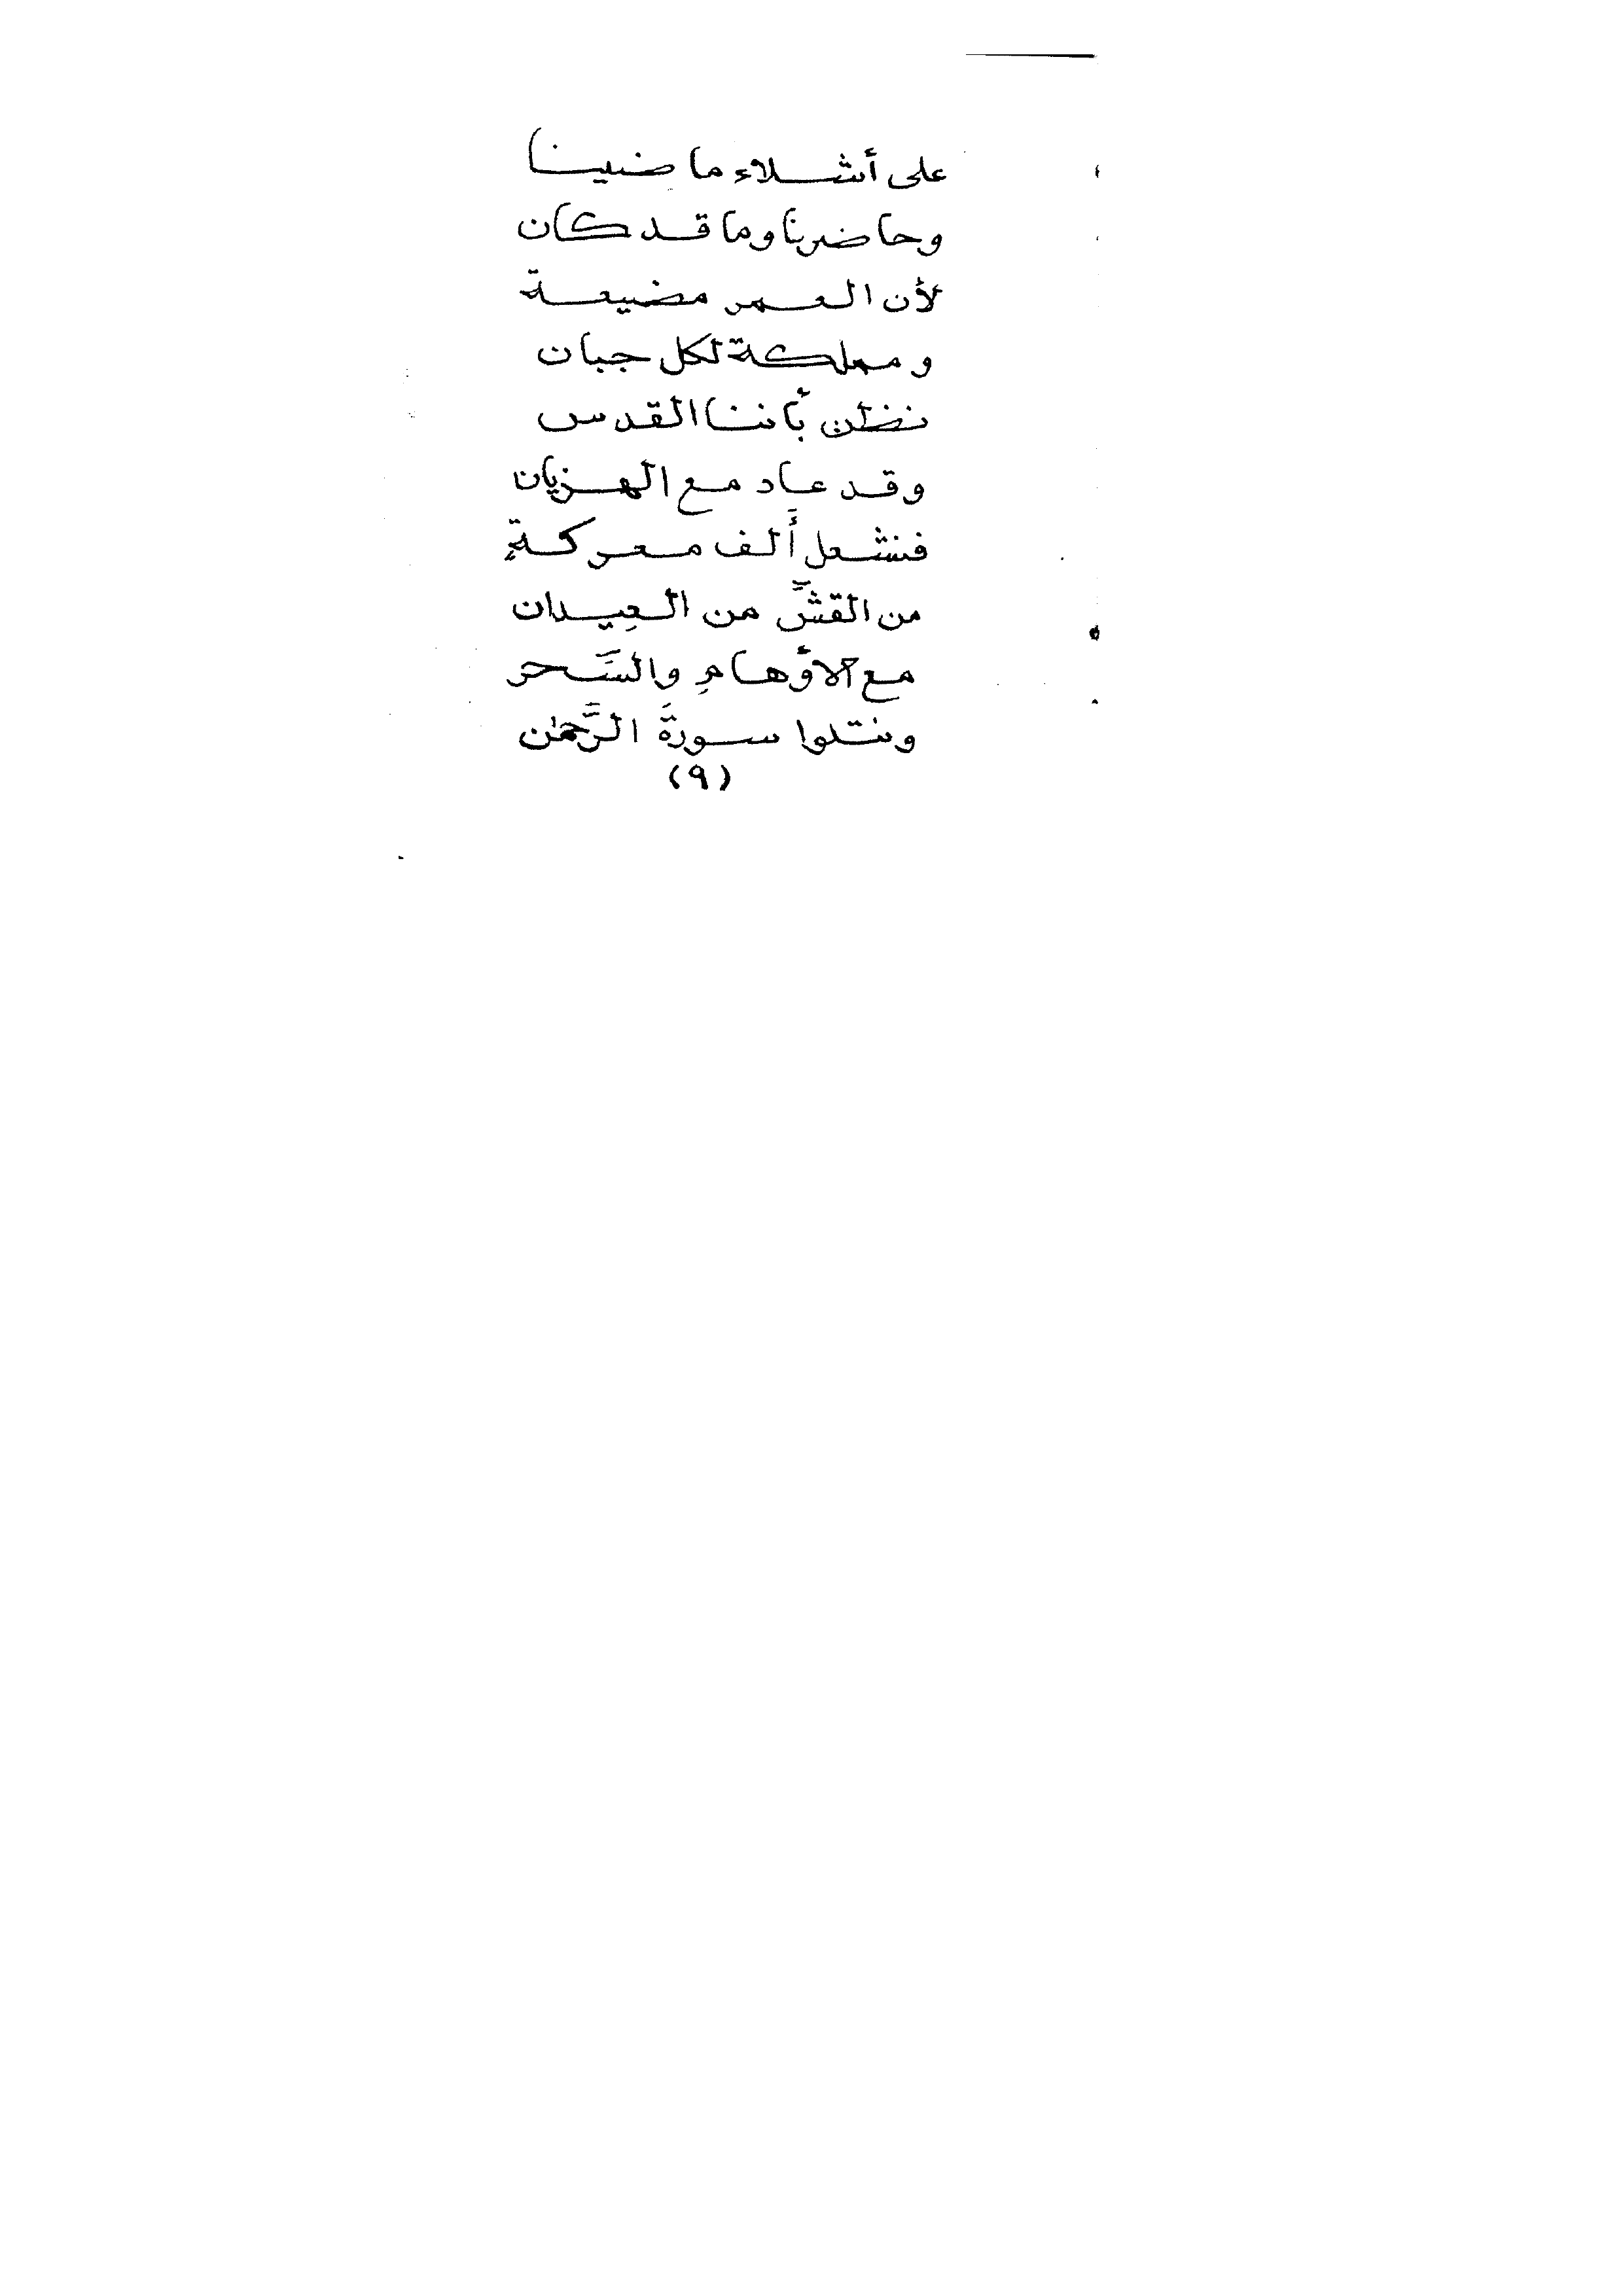 على أشلاء ماضينا
وحاضرنا وما قد كان
لأن العمر مضيعة
ومملكة لكل جبان
نظن بأننا القدس
وقد عاد مع الهزيان
فنشعل أَلف معركةٍ
من القشِّ من العِيدان
مع الأوْهامِ والسَّحر
ونتلوا سورةَ الرَّحمٰن
(٩)